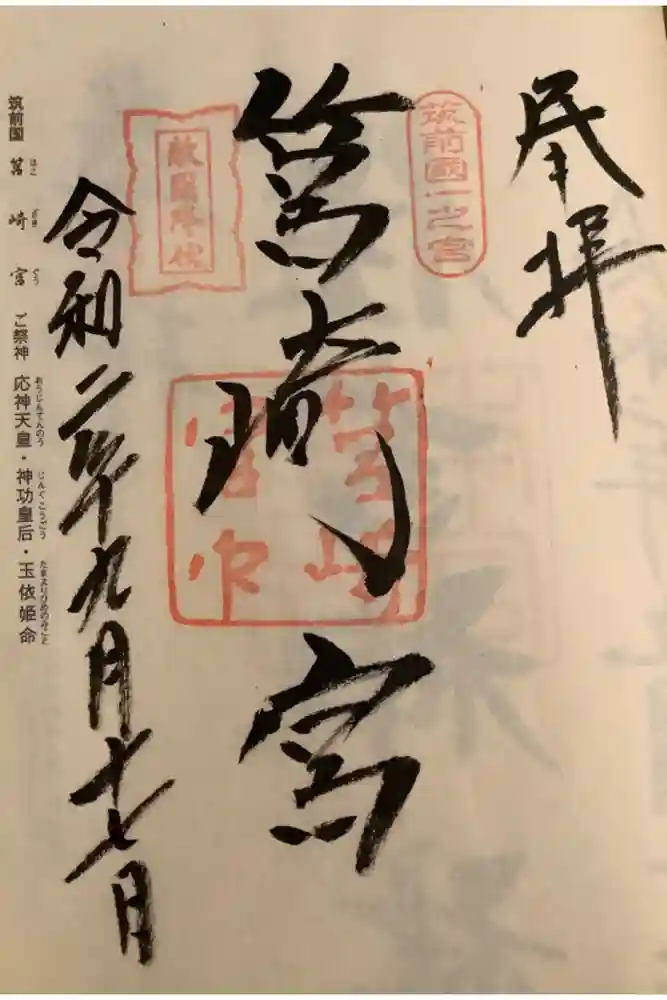 奉拝
筑前國一之宮
筥崎宮
筥崎宮印
敵國降伏
令和二年九月十七日
筑前国 筥崎宮 ご祭神 応神天皇・神功皇后・玉依姫命
はこ ざき ぐう おうじんてんのう じんぐうこうごう たまよりひめのみこと